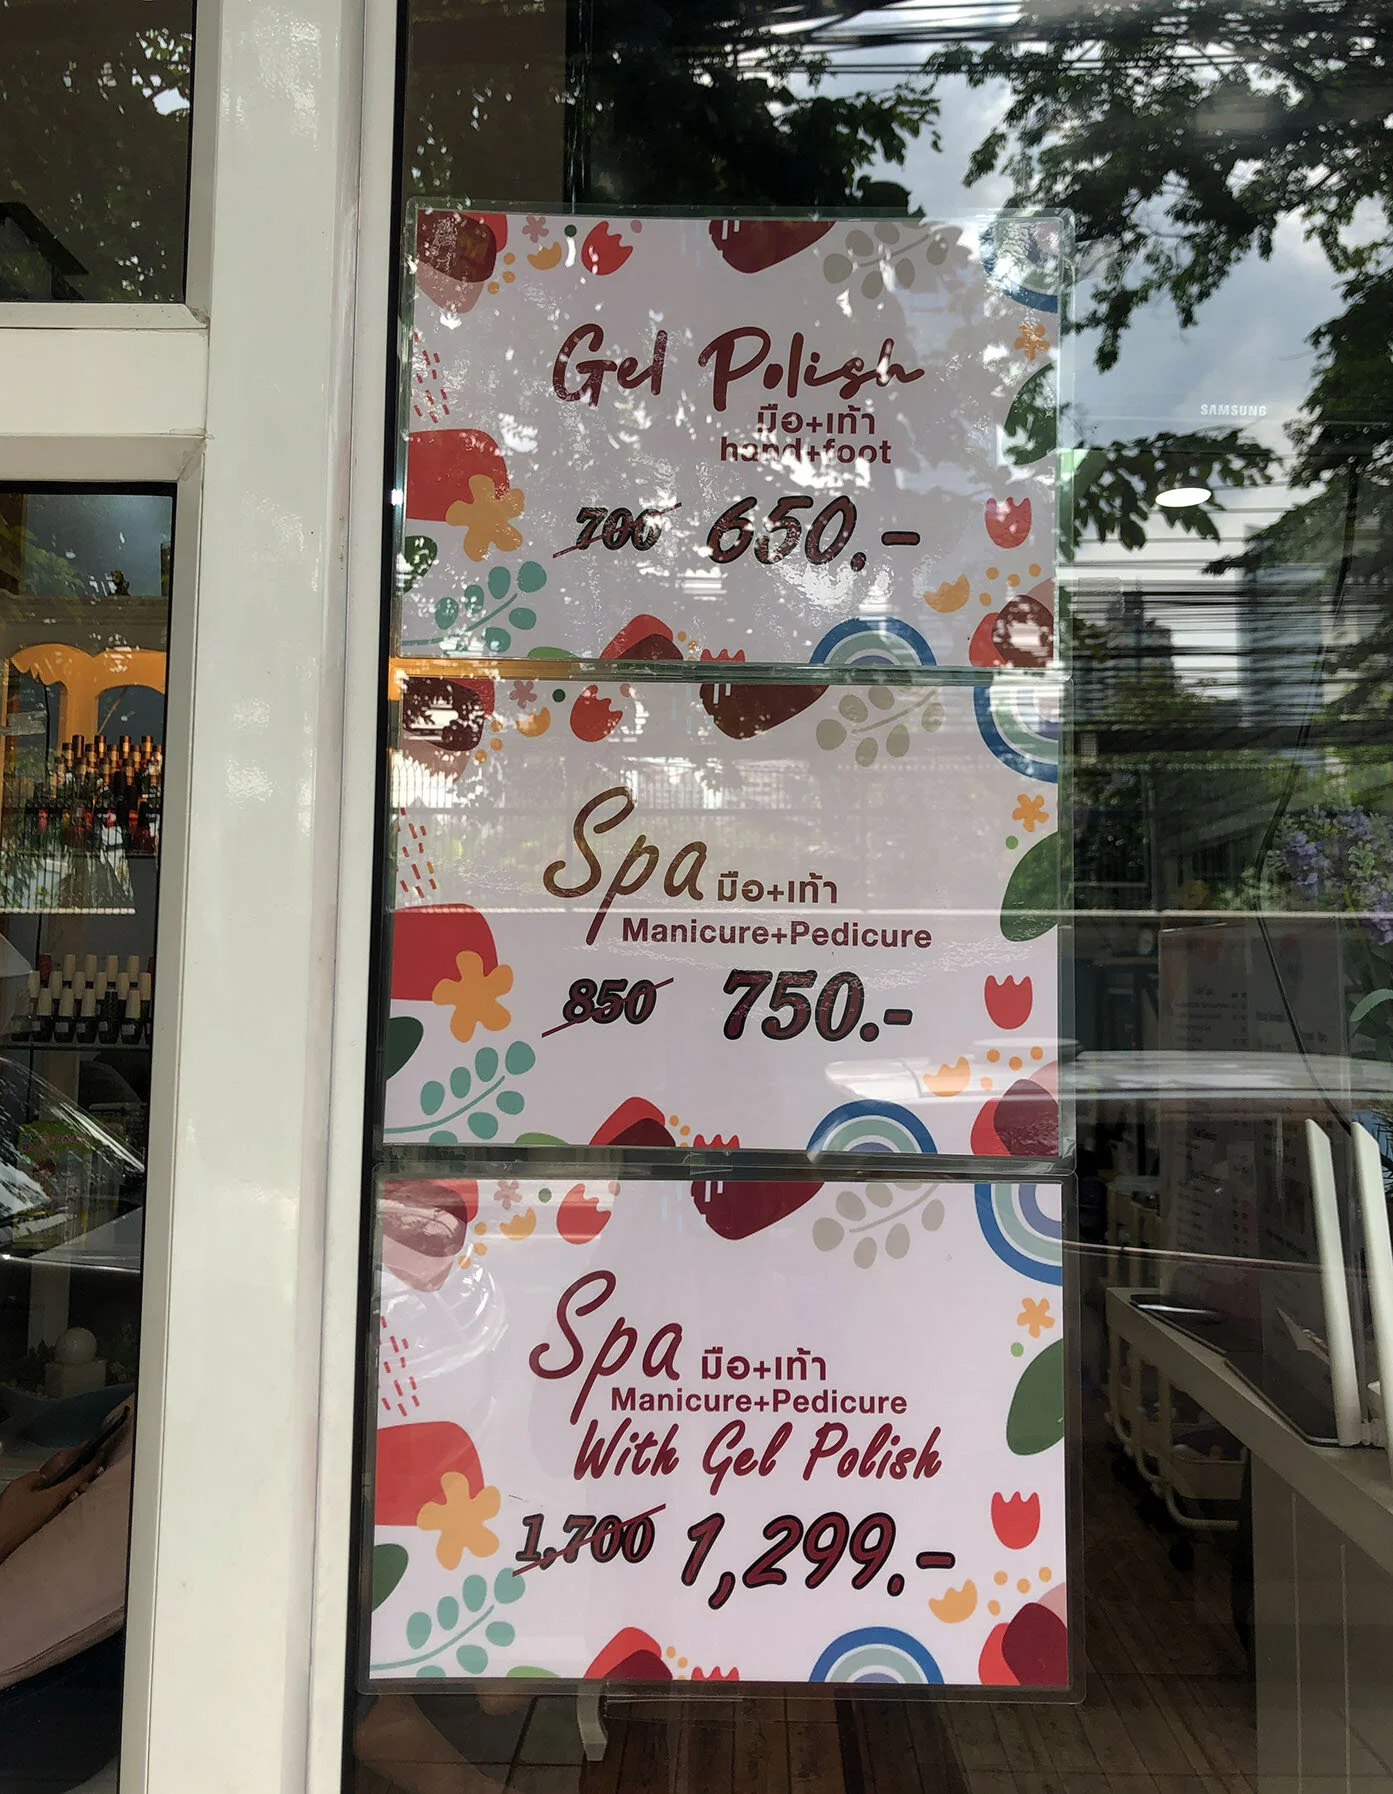 Gel Polish
มือ+เท้า
hand+foot
700 650.-
SAMSUNG
Spa มือ+เท้า
Manicure+Pedicure
850 750.-
Spa มือ+เท้า
Manicure+Pedicure
With Gel Polish
1,700 1,299.-